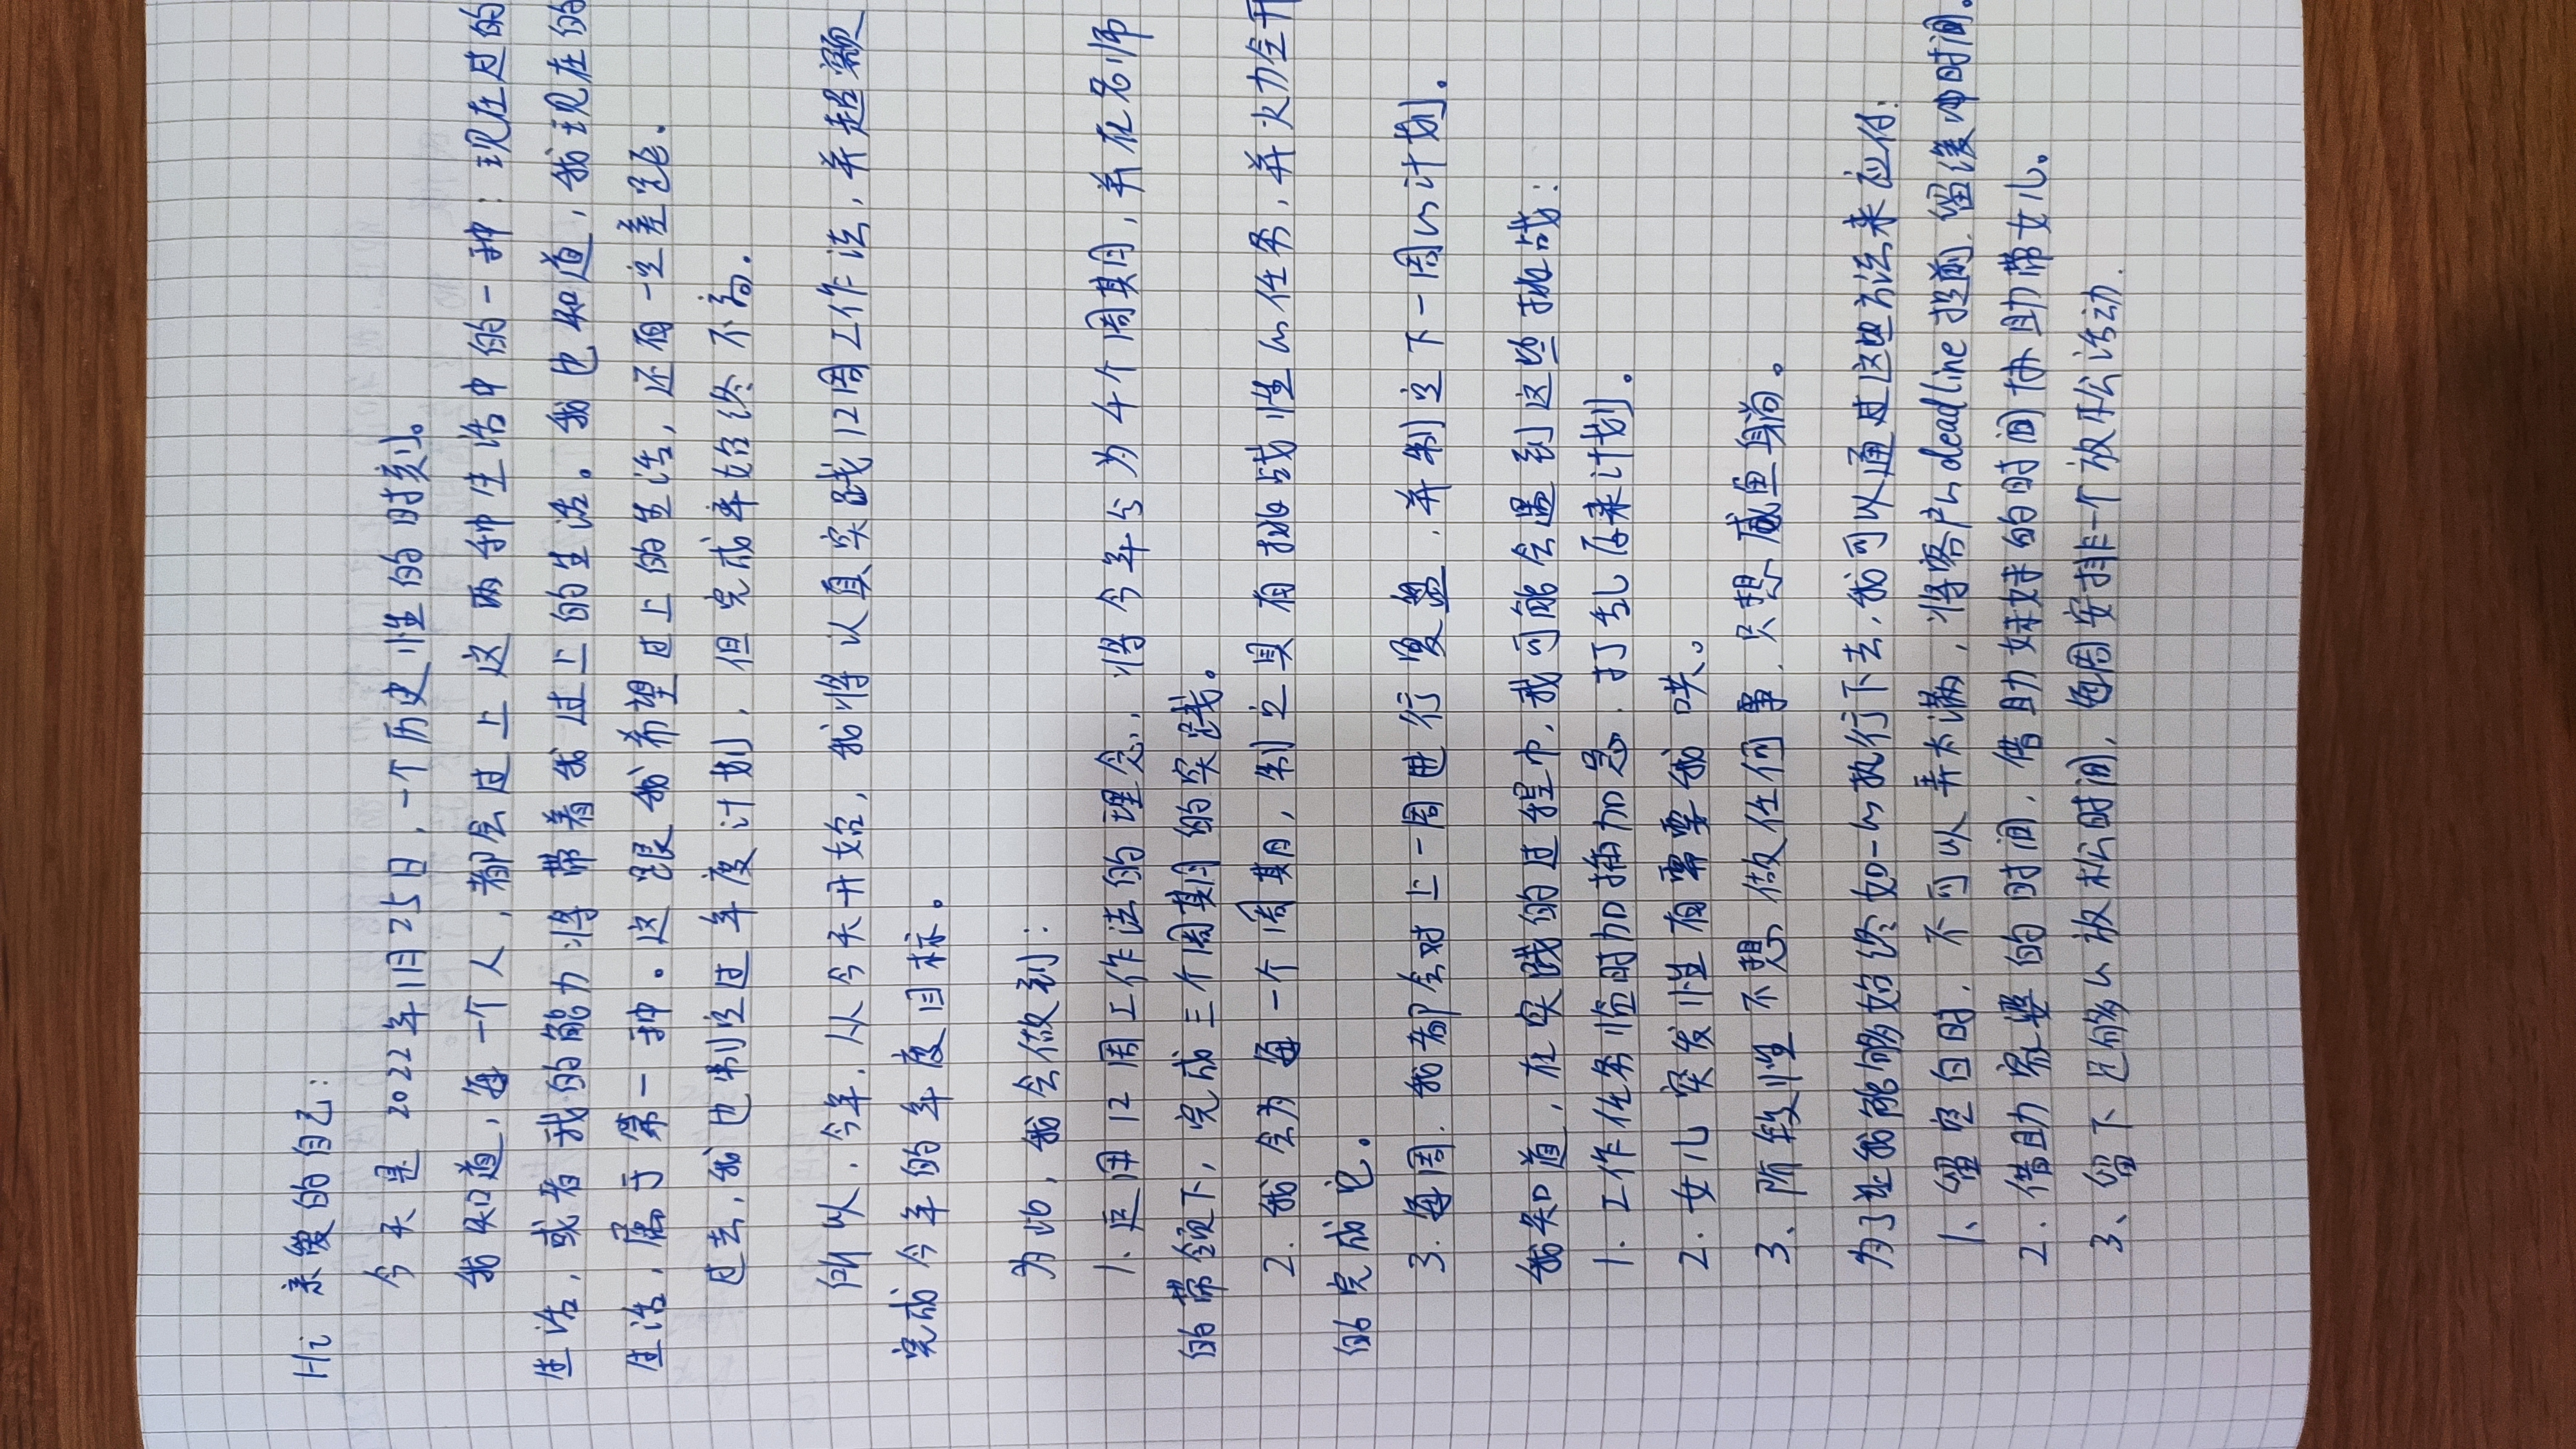 Hi 亲爱的自己:
今天是2022年1月25日,一个历史性的时刻。
我知道,每一个人,都会过上这两种生活中的一种:现在过的
生活,或者我的能力将带着我过上的生活。我也知道,我现在的
生活,属于第一种。这跟我希望过上的生活,还有一定差距。
过去,我也制定过年度计划,但完成率始终不高。
所以,今年,从今天开始,我将认真实践12周工作法,并超额
完成今年的年度目标。
为此,我会做到:
1.应用12周工作法的理念,将今年分为4个周期,并在名师
的带领下,完成三个周期的实践。
2.我会为每一个周期,制定具有挑战性的任务,并火力全开
的完成它。
3.每周,我都会对上一周进行复盘,并制定下一周的计划。
我知道,在实践的过程中,我可能会遇到这些挑战:
1.工作任务临时加插加急,打乱原来计划。
2.女儿突发性有需要我哄。
3、阶段性不想做任何事,只想咸鱼躺。
为了让我能够始终如一的执行下去,我可以通过这些方法来应付:
1、留空白时,不可以弄太满,将客户的deadline提前,留缓冲时间。
2.借助家婆的时间,借助妹妹的时间协助带女儿。
3、留下足够的放松时间,每周安排一个放松活动.